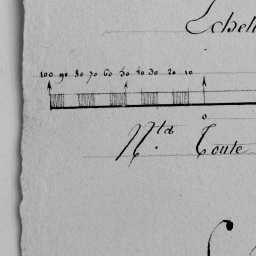 Echel
100 90 80 70 60 50 40 30 20 10
0
N.ta Toute